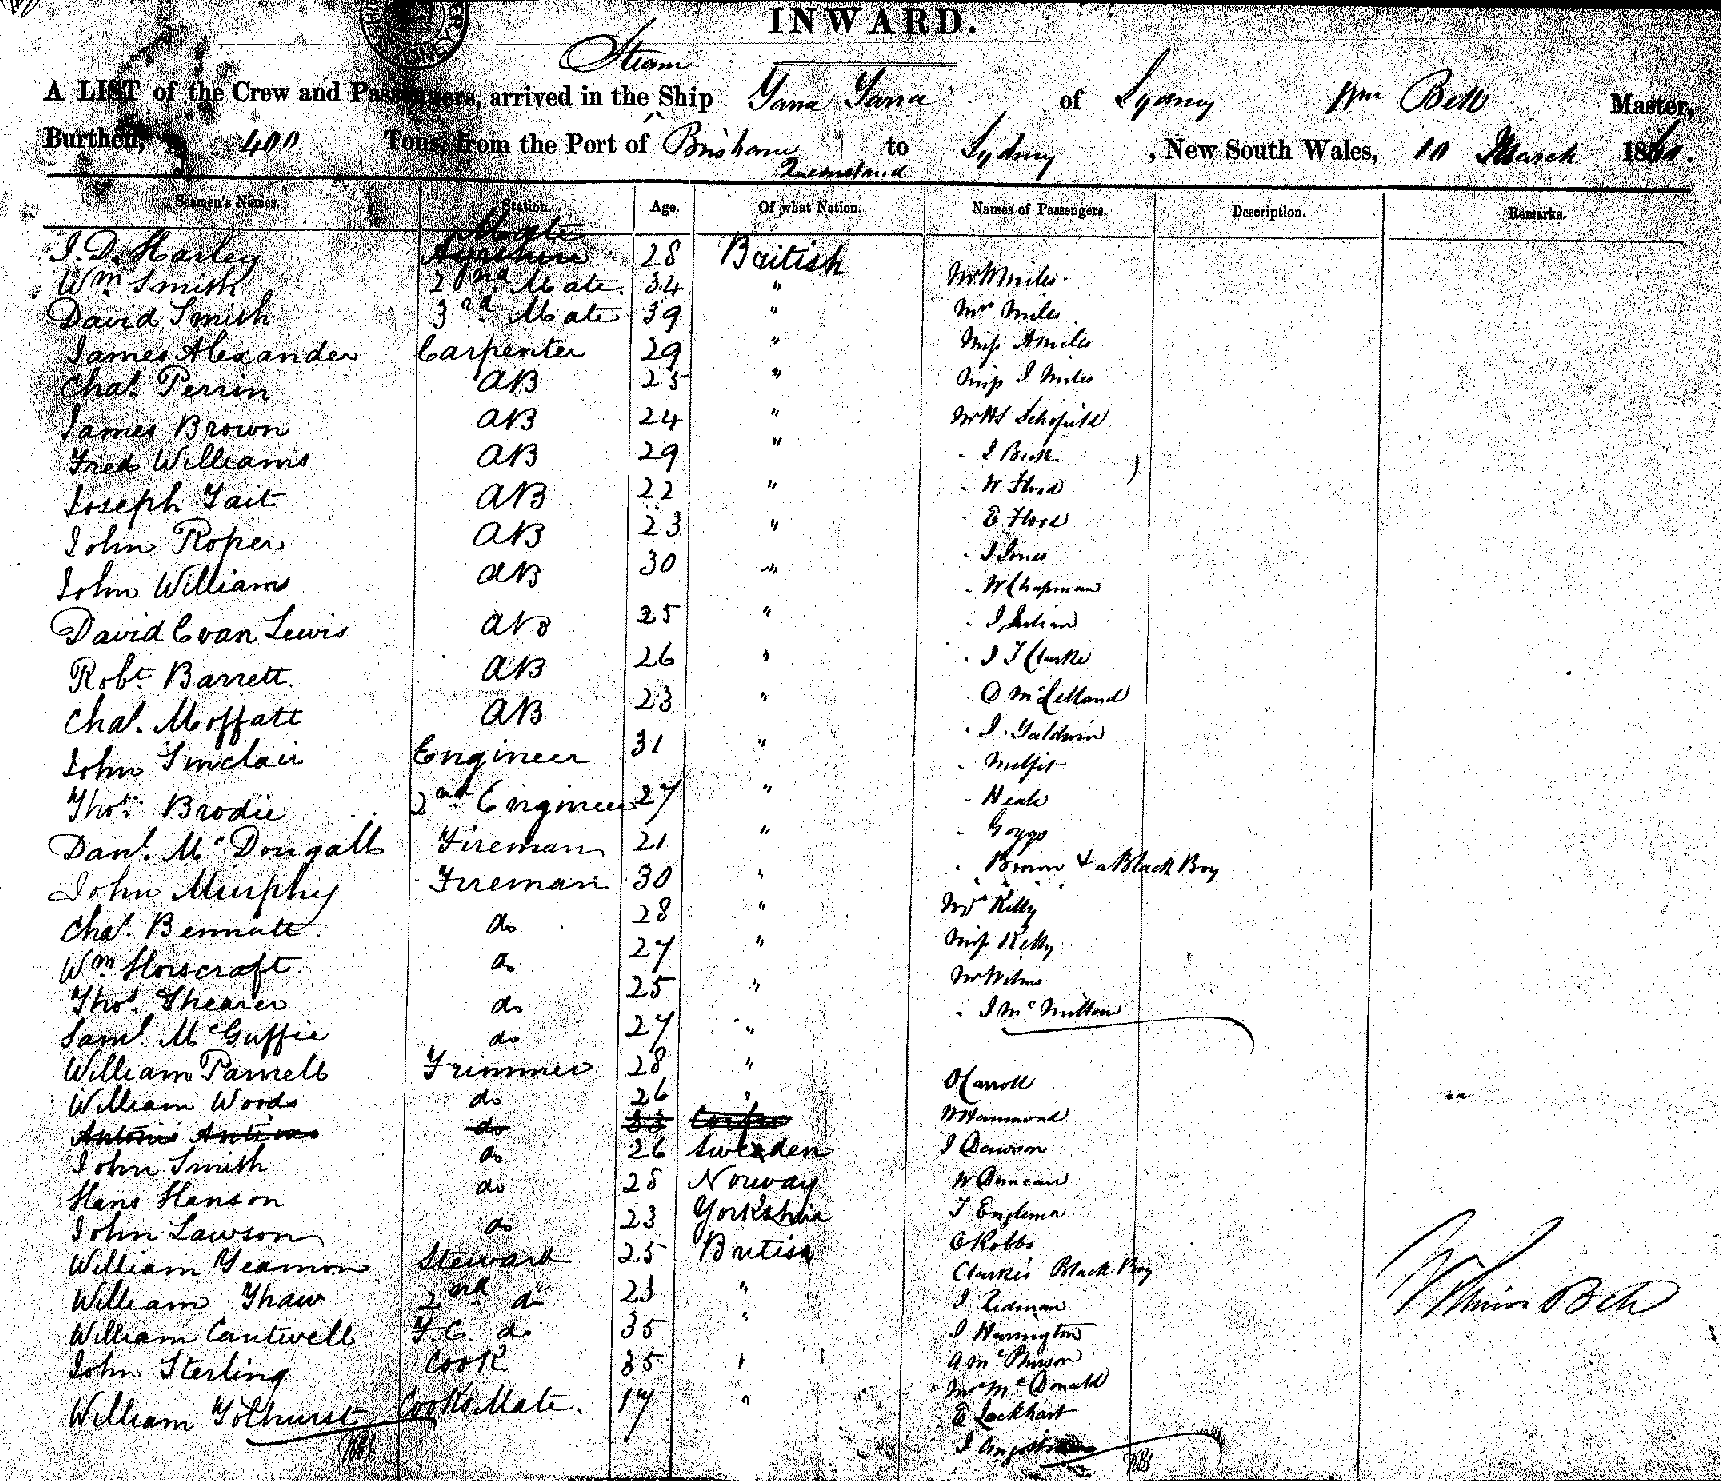 INWARD.
Steam
A LIST of the Crew and Passengers, arrived in the Ship Yarra Yarra of Sydney Wm Bell Master,
Burthen, 400 Tons, from the Port of Brisbane to Sydney, New South Wales, 10 March
Queensland
Seamen's Names. Station. Age. Of what Nation. Names of Passengers. Description. Remarks.
J. D. Harley 28 British
Wm Smith 2nd Mate 34 " Mr Miles
David Smith 3rd Mate 39 " Mrs Miles
James Alexander Carpenter 29 " Miss A Miles
Chas. Perrin AB 25 " Miss J Miles
James Brown AB 24 " Schofield
Fred Williams AB 29 "
Joseph Tait AB 22 " - W Flood
John Roper AB 23 " - E Flood
John Williams AB 30 " - J Jones
David Evan Lewis AB 25 " - W Chapman
Robt. Barrett AB 26 " - J T Clarke
Chas. Moffatt AB 23 " - McLelland
John Sinclair Engineer 31 " - J. Galdwin
Thos. Brodie 2nd Engineer 27 "
Danl. McDougall Fireman 21 "
John Murphy Fireman 30 " - Brown & a Black Boy
Chas. Bennett do 28 " Mrs Kelly
Wm Horscraft do 27 " Miss Kelly
Thos. Shearer do 25 "
Saml. McGuffie do 27 "
William Parnell Trimmer 28 "
William Woods do 26 " Carroll
Antonio do 33 W Hammond
John Smith do 26 Sweden J Dawson
Hans Hanson do 28 Norway W Duncan
John Lawson do 23 Yorkshire
William Yeamon Steward 25 British C Robbs
William Thaw 2nd do 23 " Clarkes Black Boy
William Cantwell F.C. do 35 " J Harrington
John Sterling Cook 35 "
William Tolhurst Cooks Mate. 17 " Mrs McDonald
E Lockhart
William Bell